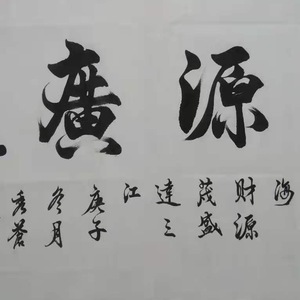 源廣
海
财源
茂盛
達三
江
庚子
冬月